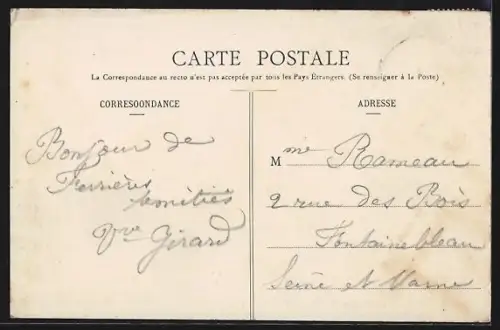 CARTE POSTALE
La Correspondance au recto n'est pas acceptée par tous les Pays Étrangers. (Se renseigner à la Poste)
CORRESOONDANCE
Bonjour de
Ferrières
Amitiés
Vve Girard
ADRESSE
Mme Rameau
2 rue des Bois
Fontainebleau
Seine et Marne